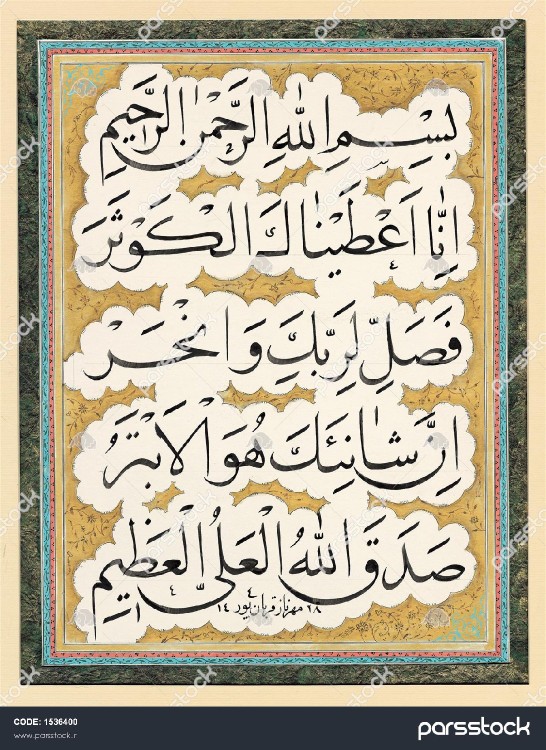 بِسْمِ اللهِ الرَّحْمنِ الرَّحيمِ
اِنّا اَعْطَيْناكَ الْكَوْثَرَ
فَصَلِّ لِرَبِّكَ وَ انْحَرْ
اِنَّ شانِئَكَ هُوَ الْاَبْتَرُ
صَدَقَ اللهُ الْعَلىُّ الْعَظيمِ
مهرناز قربان‌پور
CODE: 1536400
www.parsstock.ir
parsstock